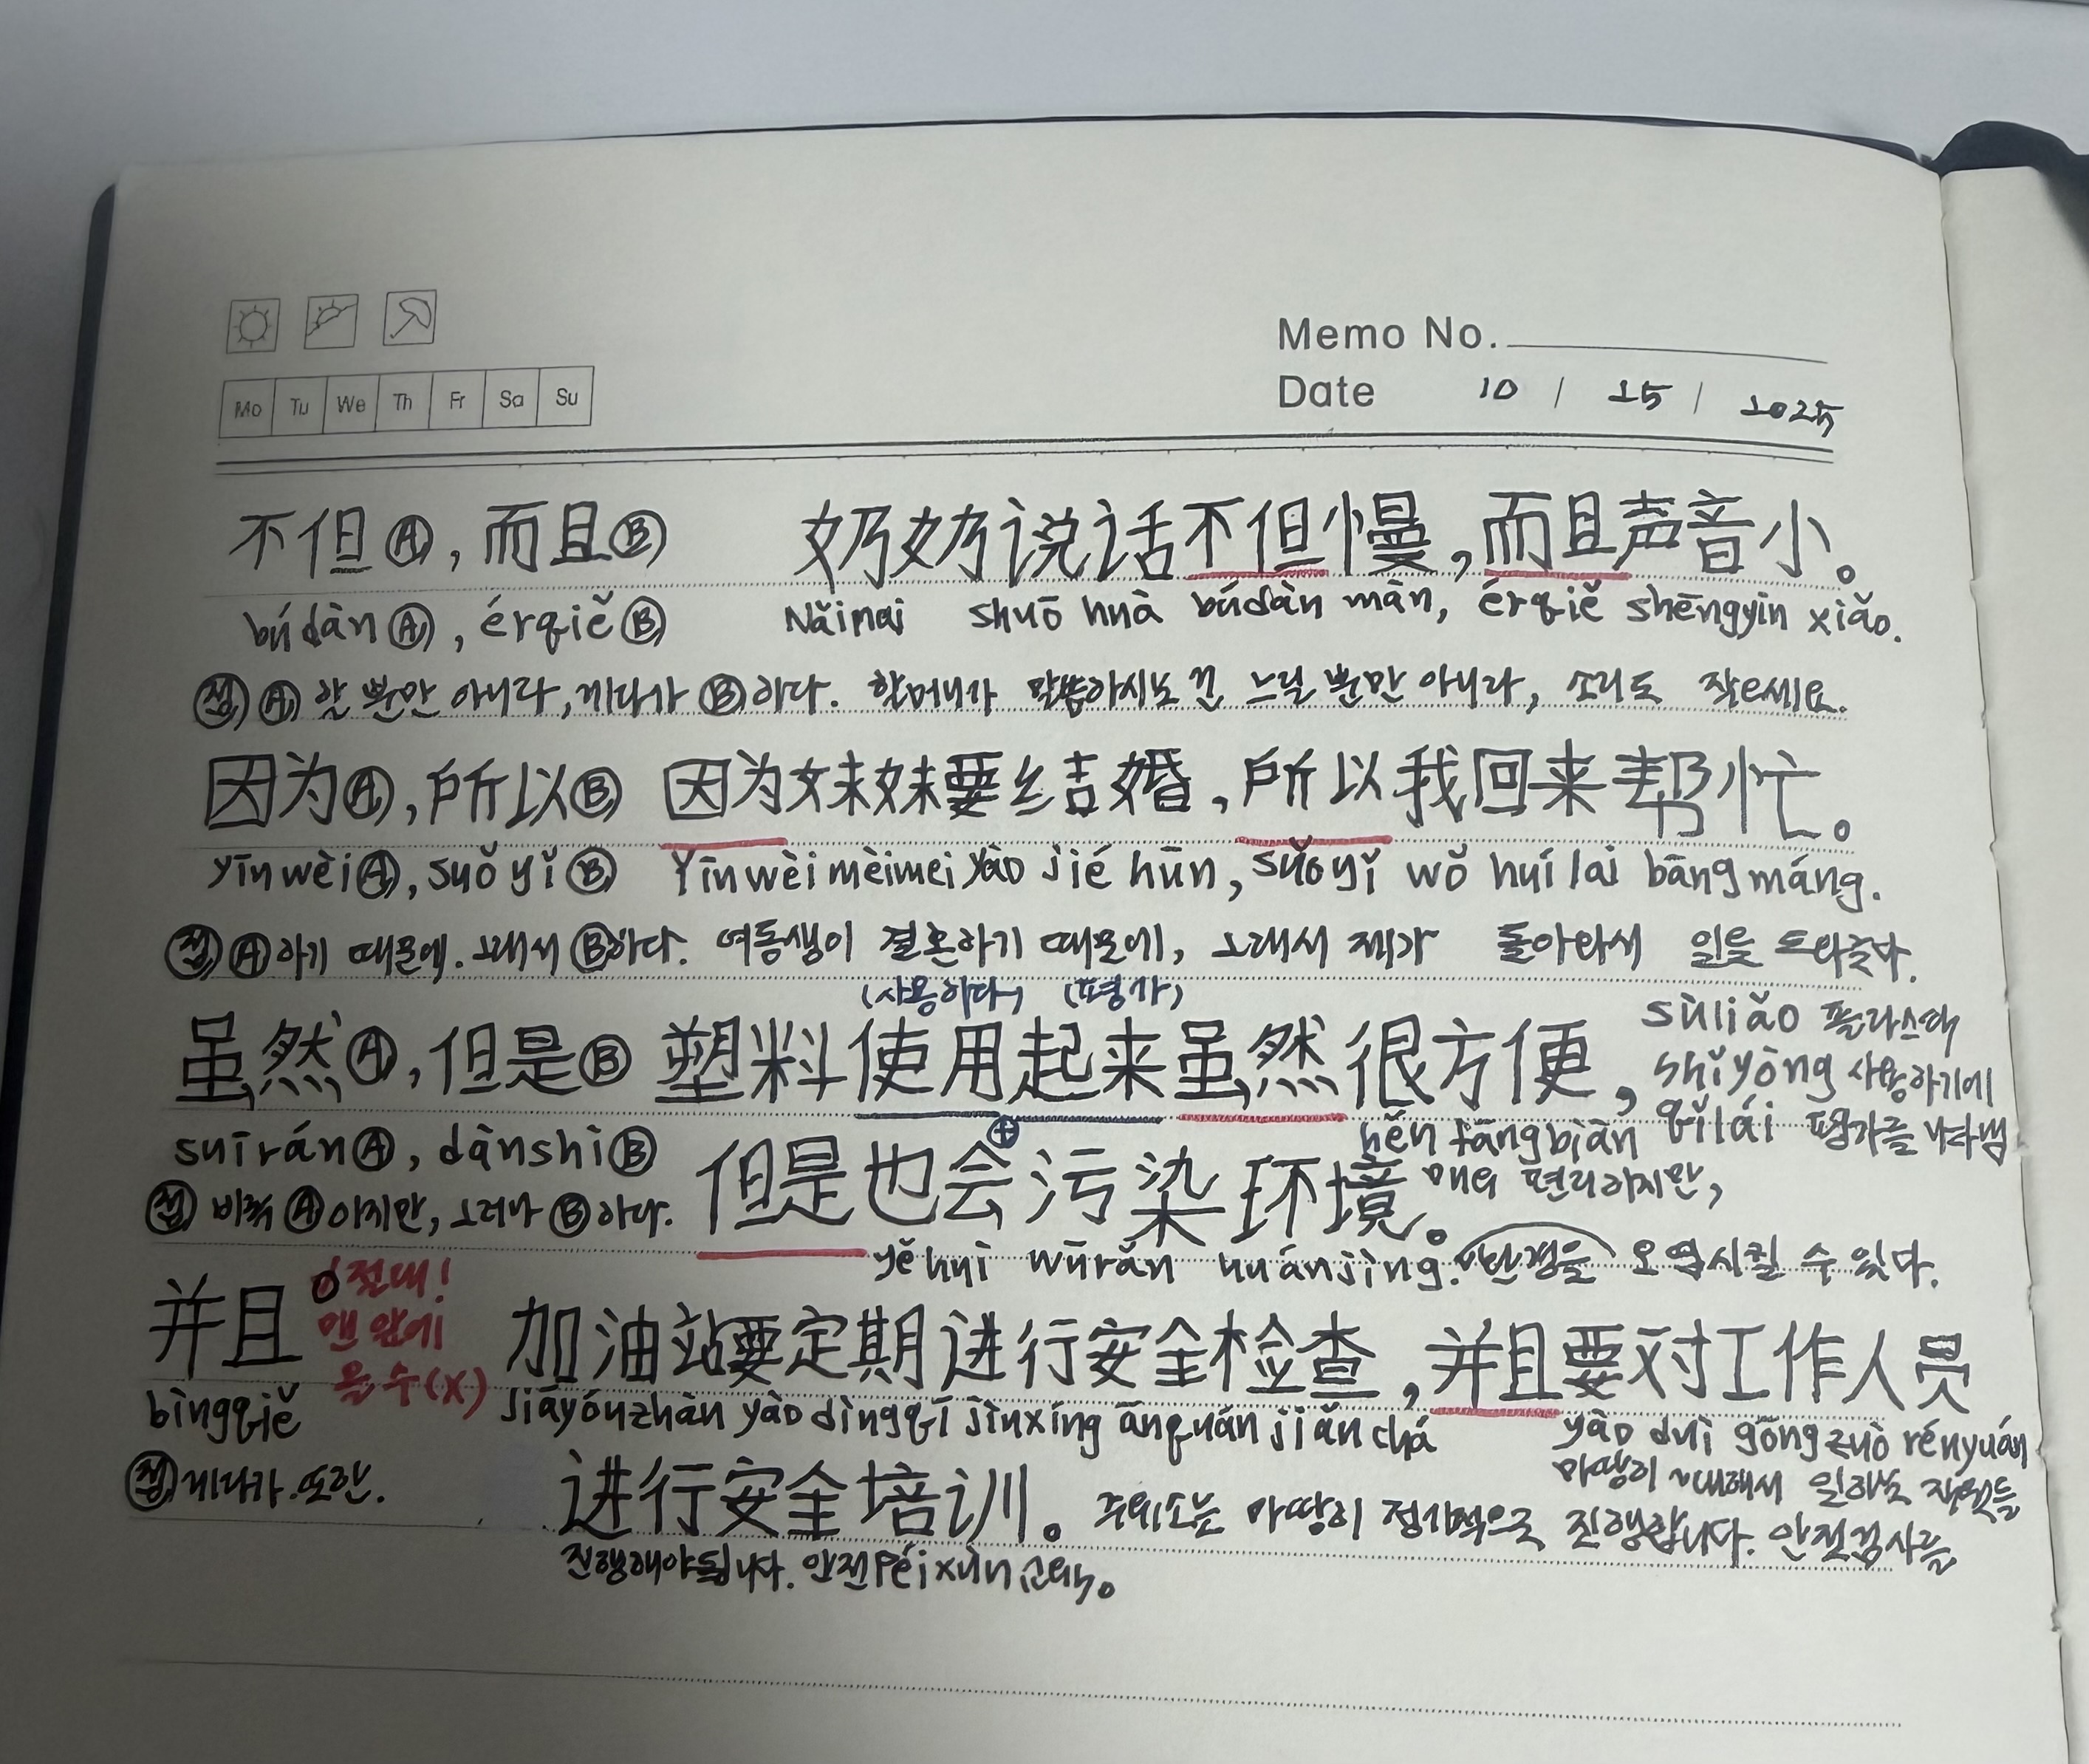 Memo No.
Mo Tu We Th Fr Sa Su
Date 10 / 15 / 2025
不但Ⓐ, 而且Ⓑ 奶奶说话不但慢, 而且声音小。
búdàn Ⓐ, érqiě Ⓑ Nǎinai shuō huà búdàn màn, érqiě shēngyīn xiǎo.
접 Ⓐ 할 뿐만 아니라, 게다가 Ⓑ 하다. 할머니가 말씀하시는 건 느릴 뿐만 아니라, 소리도 작으세요.
因为Ⓐ, 所以Ⓑ 因为妹妹要结婚, 所以我回来帮忙。
yīnwèi Ⓐ, suǒyǐ Ⓑ Yīnwèi mèimei yào jié hūn, suǒyǐ wǒ huí lai bāng máng.
접 Ⓐ하기 때문에. 그래서 Ⓑ하다. 여동생이 결혼하기 때문에, 그래서 제가 돌아와서 일을
(사용하다) (평가)
虽然Ⓐ, 但是Ⓑ 塑料使用起来虽然很方便,
sùliǎo 플라스틱
shǐyòng 사용하기에
qǐlái 평가를 나타냄
suīrán Ⓐ, dànshì Ⓑ
hěn fāngbiàn
매우 편리하지만,
但是也会污染环境。
접 비록 Ⓐ 이지만, 그러나 Ⓑ 하다.
yě huì wūrǎn huánjìng. 환경을 오염시킬 수 있다.
并且 절대!
맨 앞에
올 수 (X)
加油站要定期进行安全检查, 并且要对工作人员
bìngqiě jiāyóuzhàn yào dìngqī jìnxíng ānquán jiǎn chá
yào duì gōng zuò rényuán
마땅히 ~대해서 일하는 직원들
접 게다가. 또한.
进行安全培训。 주유소는 마땅히 정기적으로 진행합니다. 안전검사를
진행해야됩니다. 안전 péixùn